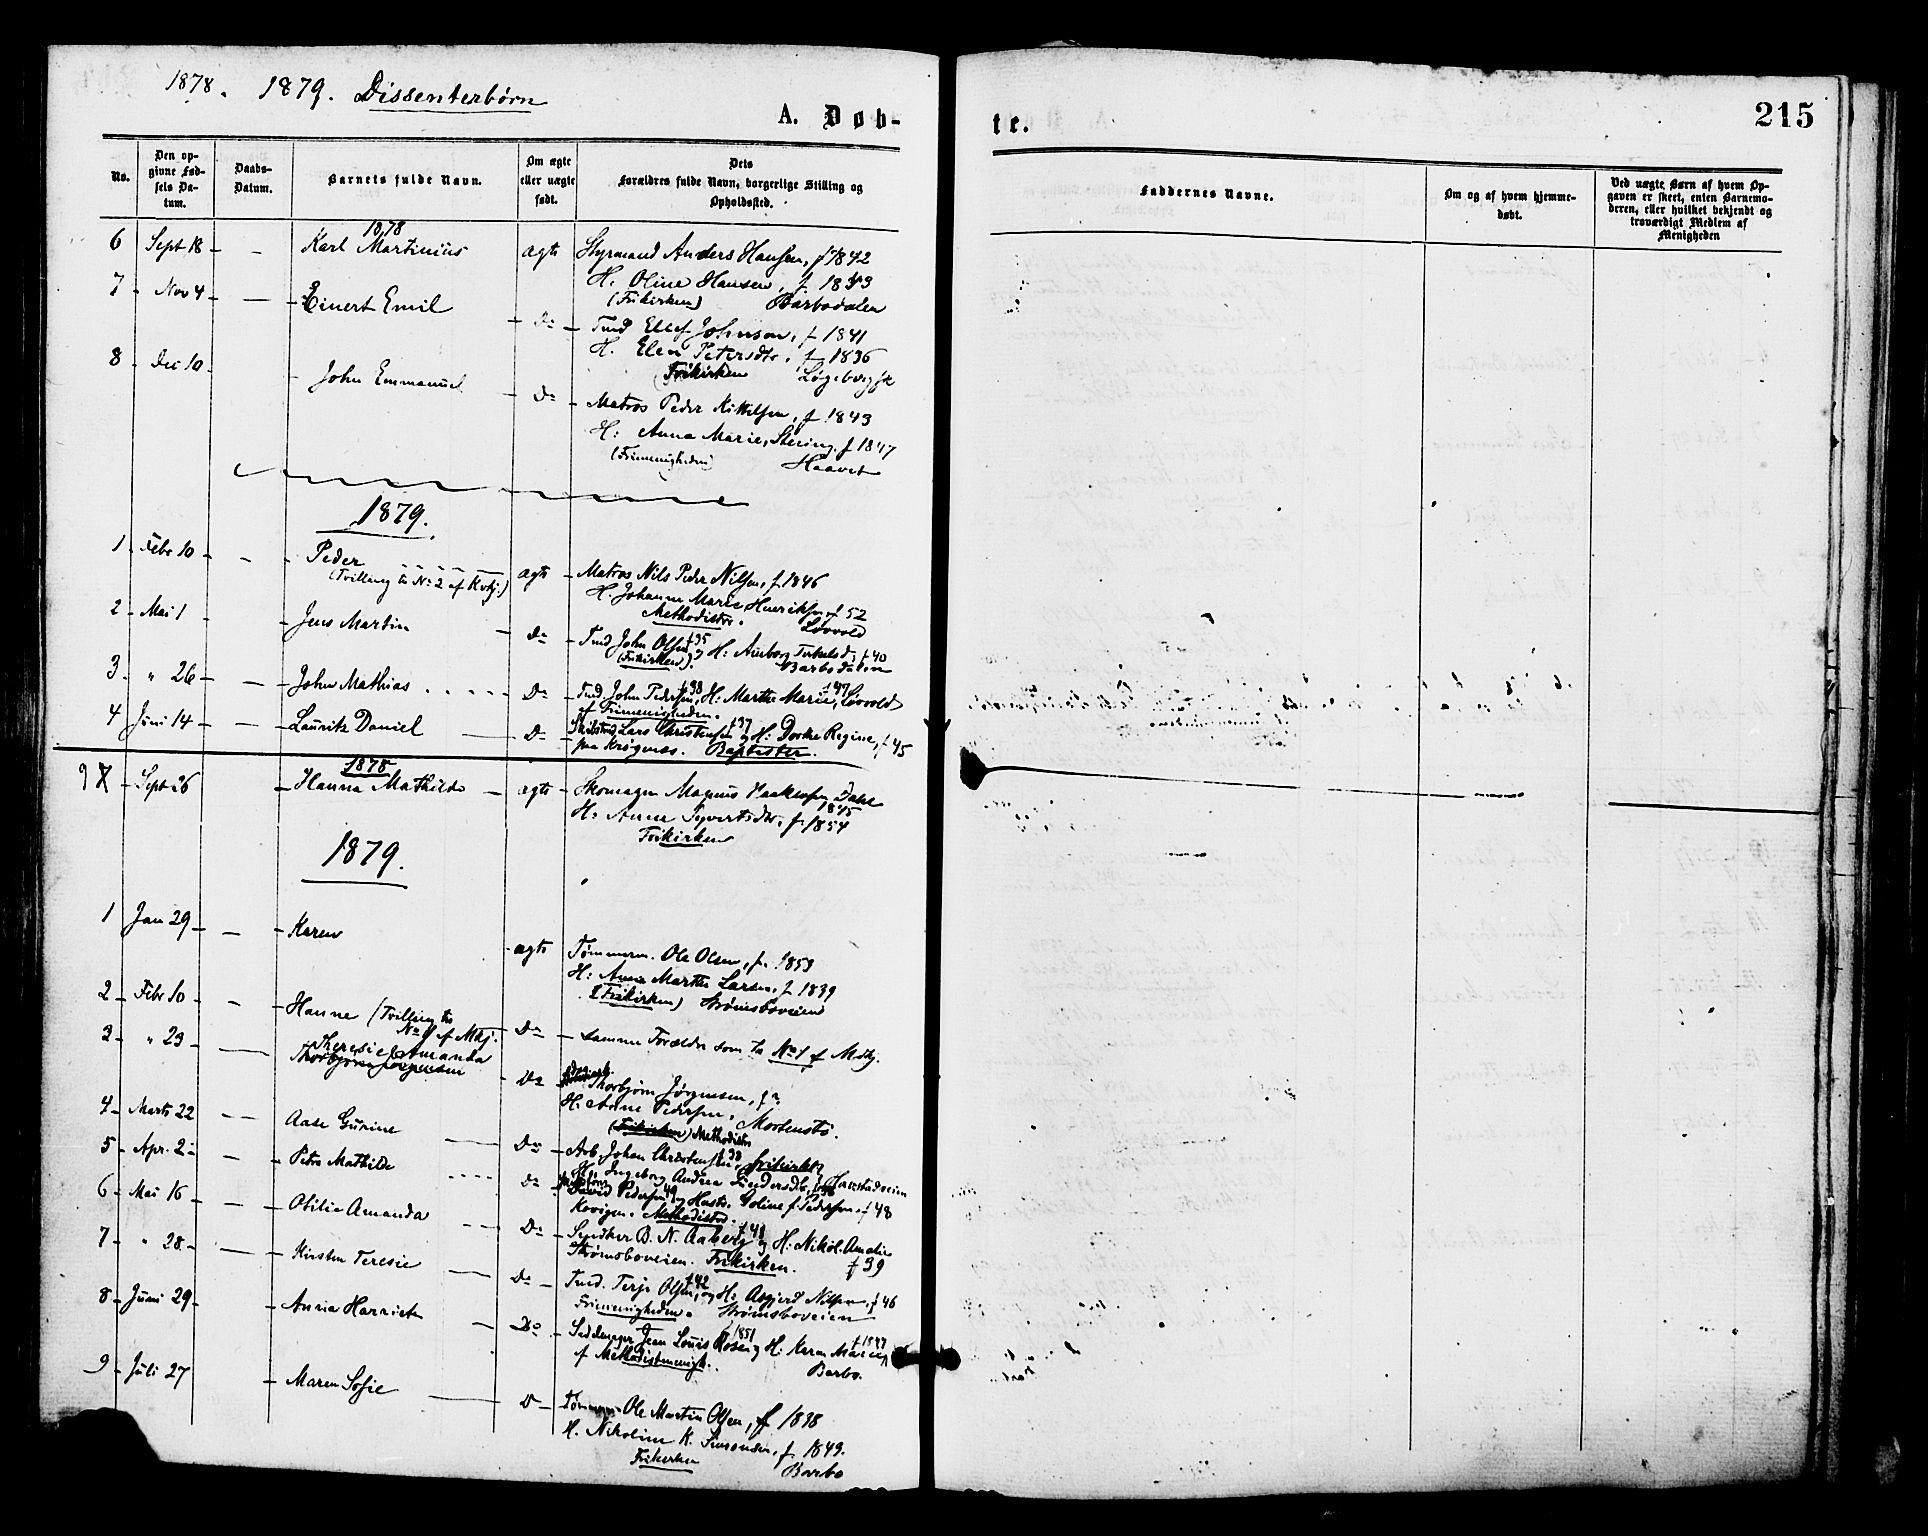 1878. 1879. Dissenterbørn
A. Døb-
te.
215
No.
Den op-
givne Fød-
sels Da-
tum.
Daabs-
Datum.
Barnets fulde Navn.
Om ægte
eller uægte
født.
Dets
Forældres fulde Navn, borgerlige Stilling og
Opholdssted.
Faddernes Navne.
Om og af hvem hjemme-
døbt.
Ved uægte Børn af hvem Op-
gaven er skeet, enten Barnemo-
deren, eller hvilket bekjendt og
troværdigt Medlem af
Menigheden
1878
6 Sept 18 - - Karl Martinius ægte Styrmand Anders Hansen, f 1842
H. Oline Hansen, f 1843
(Frikirken) Barbodalen
7 Nov 4 - Einert Emil - Do - Tmd Ellef Johnson, f 1841
H. Elen Petersdtr, f 1836
Frikirken
8 Dec 10 - John Emmanuel - Do - Matros Peder Kittelsen, f 1843
H: Anna Marie, f 1847
(Frimenigheden) Haavet
1879.
1 Febr 10 - - Peder ægte - Matros Nils Peder Nilsen, f 1846
(Tvilling til No 2 af Kvkj.)
H. Johanne Marie Henriksen f 52
Methodister. Løvold
2 Mai 1 - Jens Martin - Do - Tmd John Olsen f 35 og H: f 40
(Frikirken). Barbodalen
3 " 26 - John Mathias Do - Tmd John Pedersen f 38, H: Marthe Marie f 47, Løvold
af Frimenigheden.
4 Juni 14 - Lauritz Daniel - Do - Lars Christensen f 37 og H: Dorthe Regine, f 45
paa Krøgenæs. Baptister.
1878
9 Sept 26 - Hanna Mathilde - ægte - Skomager Magnus Dahl
1845
H: Anne Syvertsdtr. f. 1854
Frikirken
1879.
1 Jan 29 - - Karen - ægte Tømmerm. Ole Olsen, f. 1853
H: Anne Marthe Larsen, f 1839
(Frikirken) Strømsboveien
2 Febr 10 - - Hanne (Tvilling til
No 1 af Mkj. - Do - samme Forældre som til No 1 af Mdkj.
3 " 23 - Theresie Amanda
Thorbjørn Jørgensen - Do - Thorbjørn Jørgensen, f
H: Anne Pedersen, Mortensbo.
(Frikirken) Methodister
4 Marts 22 - Aase Gurine - Do - Arb. Johan Christensen f 38, Frikirken
H: Ingeborg Andrea
5 Apr. 2 - Petra Mathilde Do David Pedersen 49 og Hustr. Goline f Pedersen, f 48
Kovigen. Methodister.
6 Mai 16 - Otilie Amanda - Do - B. N. Aaberg f 41 og H: Nikol. Amalie
Strømsboveien. Frikirken. f 39
7 " 28 - Kirsten Teresie - Do - Tmd. Terje Olsen f 42, og H: Asgjerd Nilsen, f 46
Frimenigheden. Strømsboveien
8 Juni 29 - Anna Harriet - Do - Sadelmager Jean Louis Rosen f 1851 og H. Karen Marie f 1847
af Methodistmenigh. Barbo.
9 Juli 27 - Maren Sofie - D - Tømmerm Ole Martin Olsen, f 1838
H. Nikoline K. Simonsen, f 1849.
Frikirken Barbo